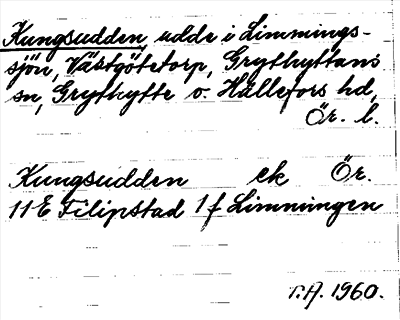 Kungsudden, udde i Limmings-
sjön, Västgötetorp, Grythyttans
sn, Grythytte o. Hällefors hd,
Ör. l.
Kungsudden ek Ör.
11E Filipstad 1f Limmingen
T.H. 1960.